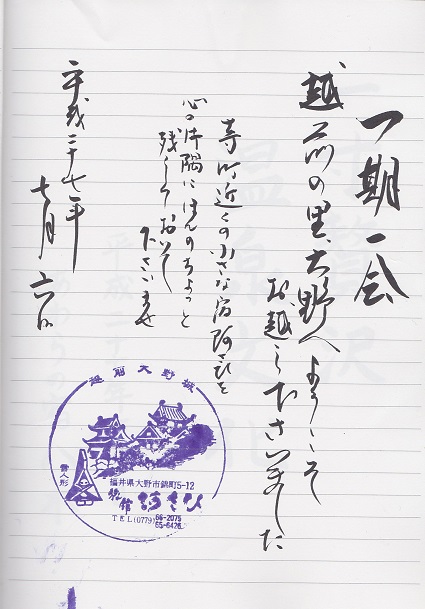 一期一会
越前の里、大野へようこそ
お越し下さいました
寺町近くの小さな宿阿さひを
心の片隅にほんのちょっと
残しておいて
下さいませ
平成二十七年
七月六日
越前大野城
人形
福井県大野市錦町5-12
旅館 阿さひ
TEL(0779)66-2075
65-6426